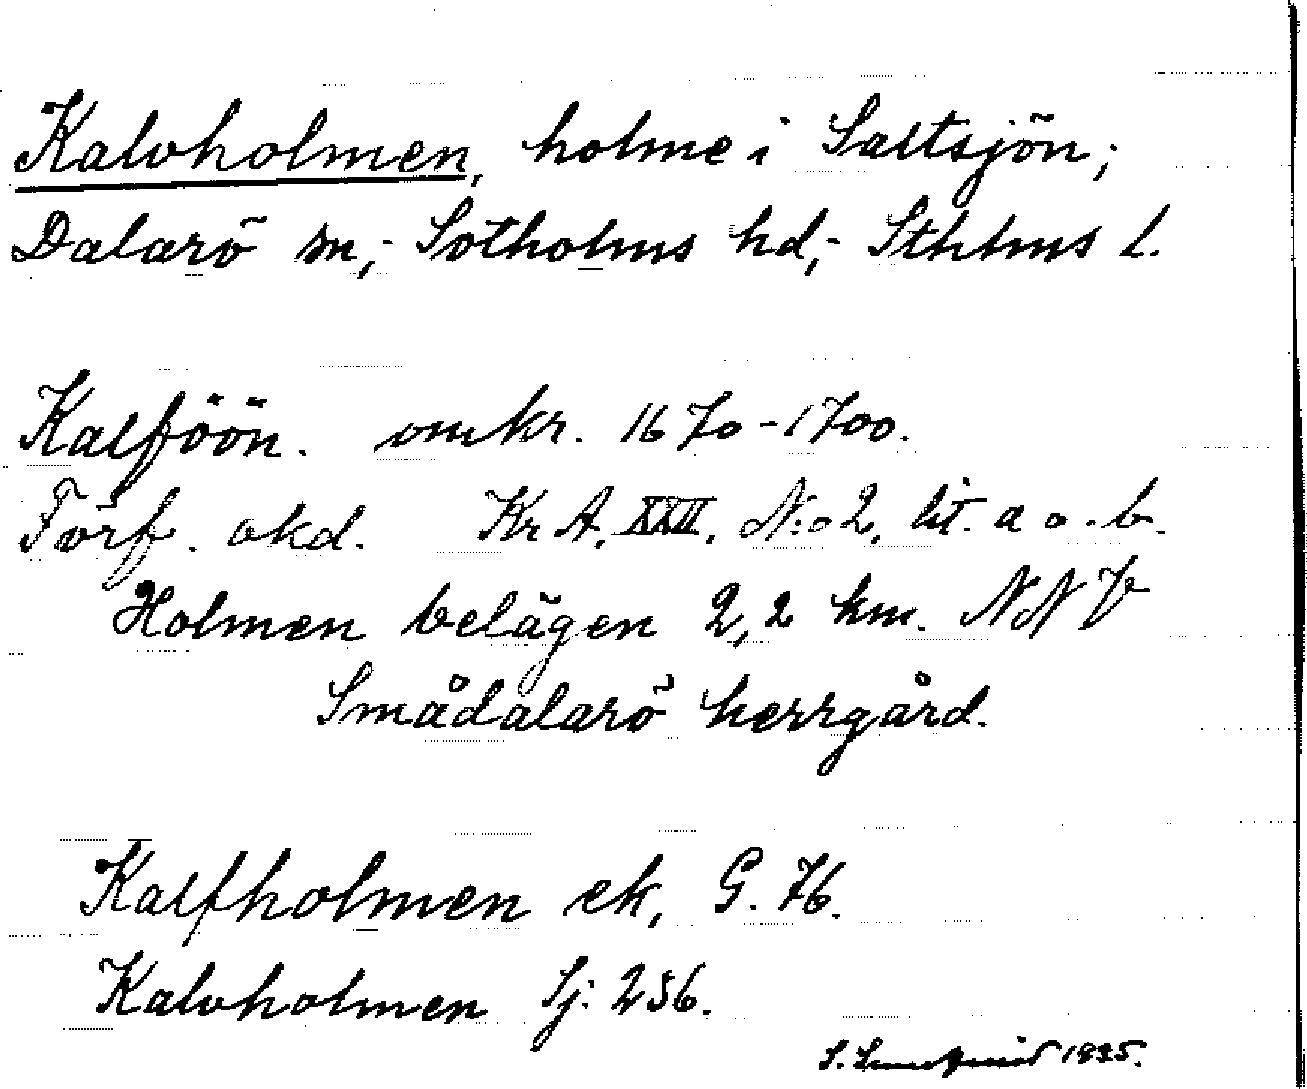 Kalvholmen, holme i Saltsjön;
Dalarö sn; Sotholms hd; Sthlms l.
Kalföön. omkr. 1670-1700.
Förf. okd. Kr A. XXII. N:o 2, lit. a o. b.
Holmen belägen 2,2 km. NNV
Smådalarö herrgård.
Kalfholmen ek, G. 76.
Kalvholmen Sj: 256.
S. 1925.